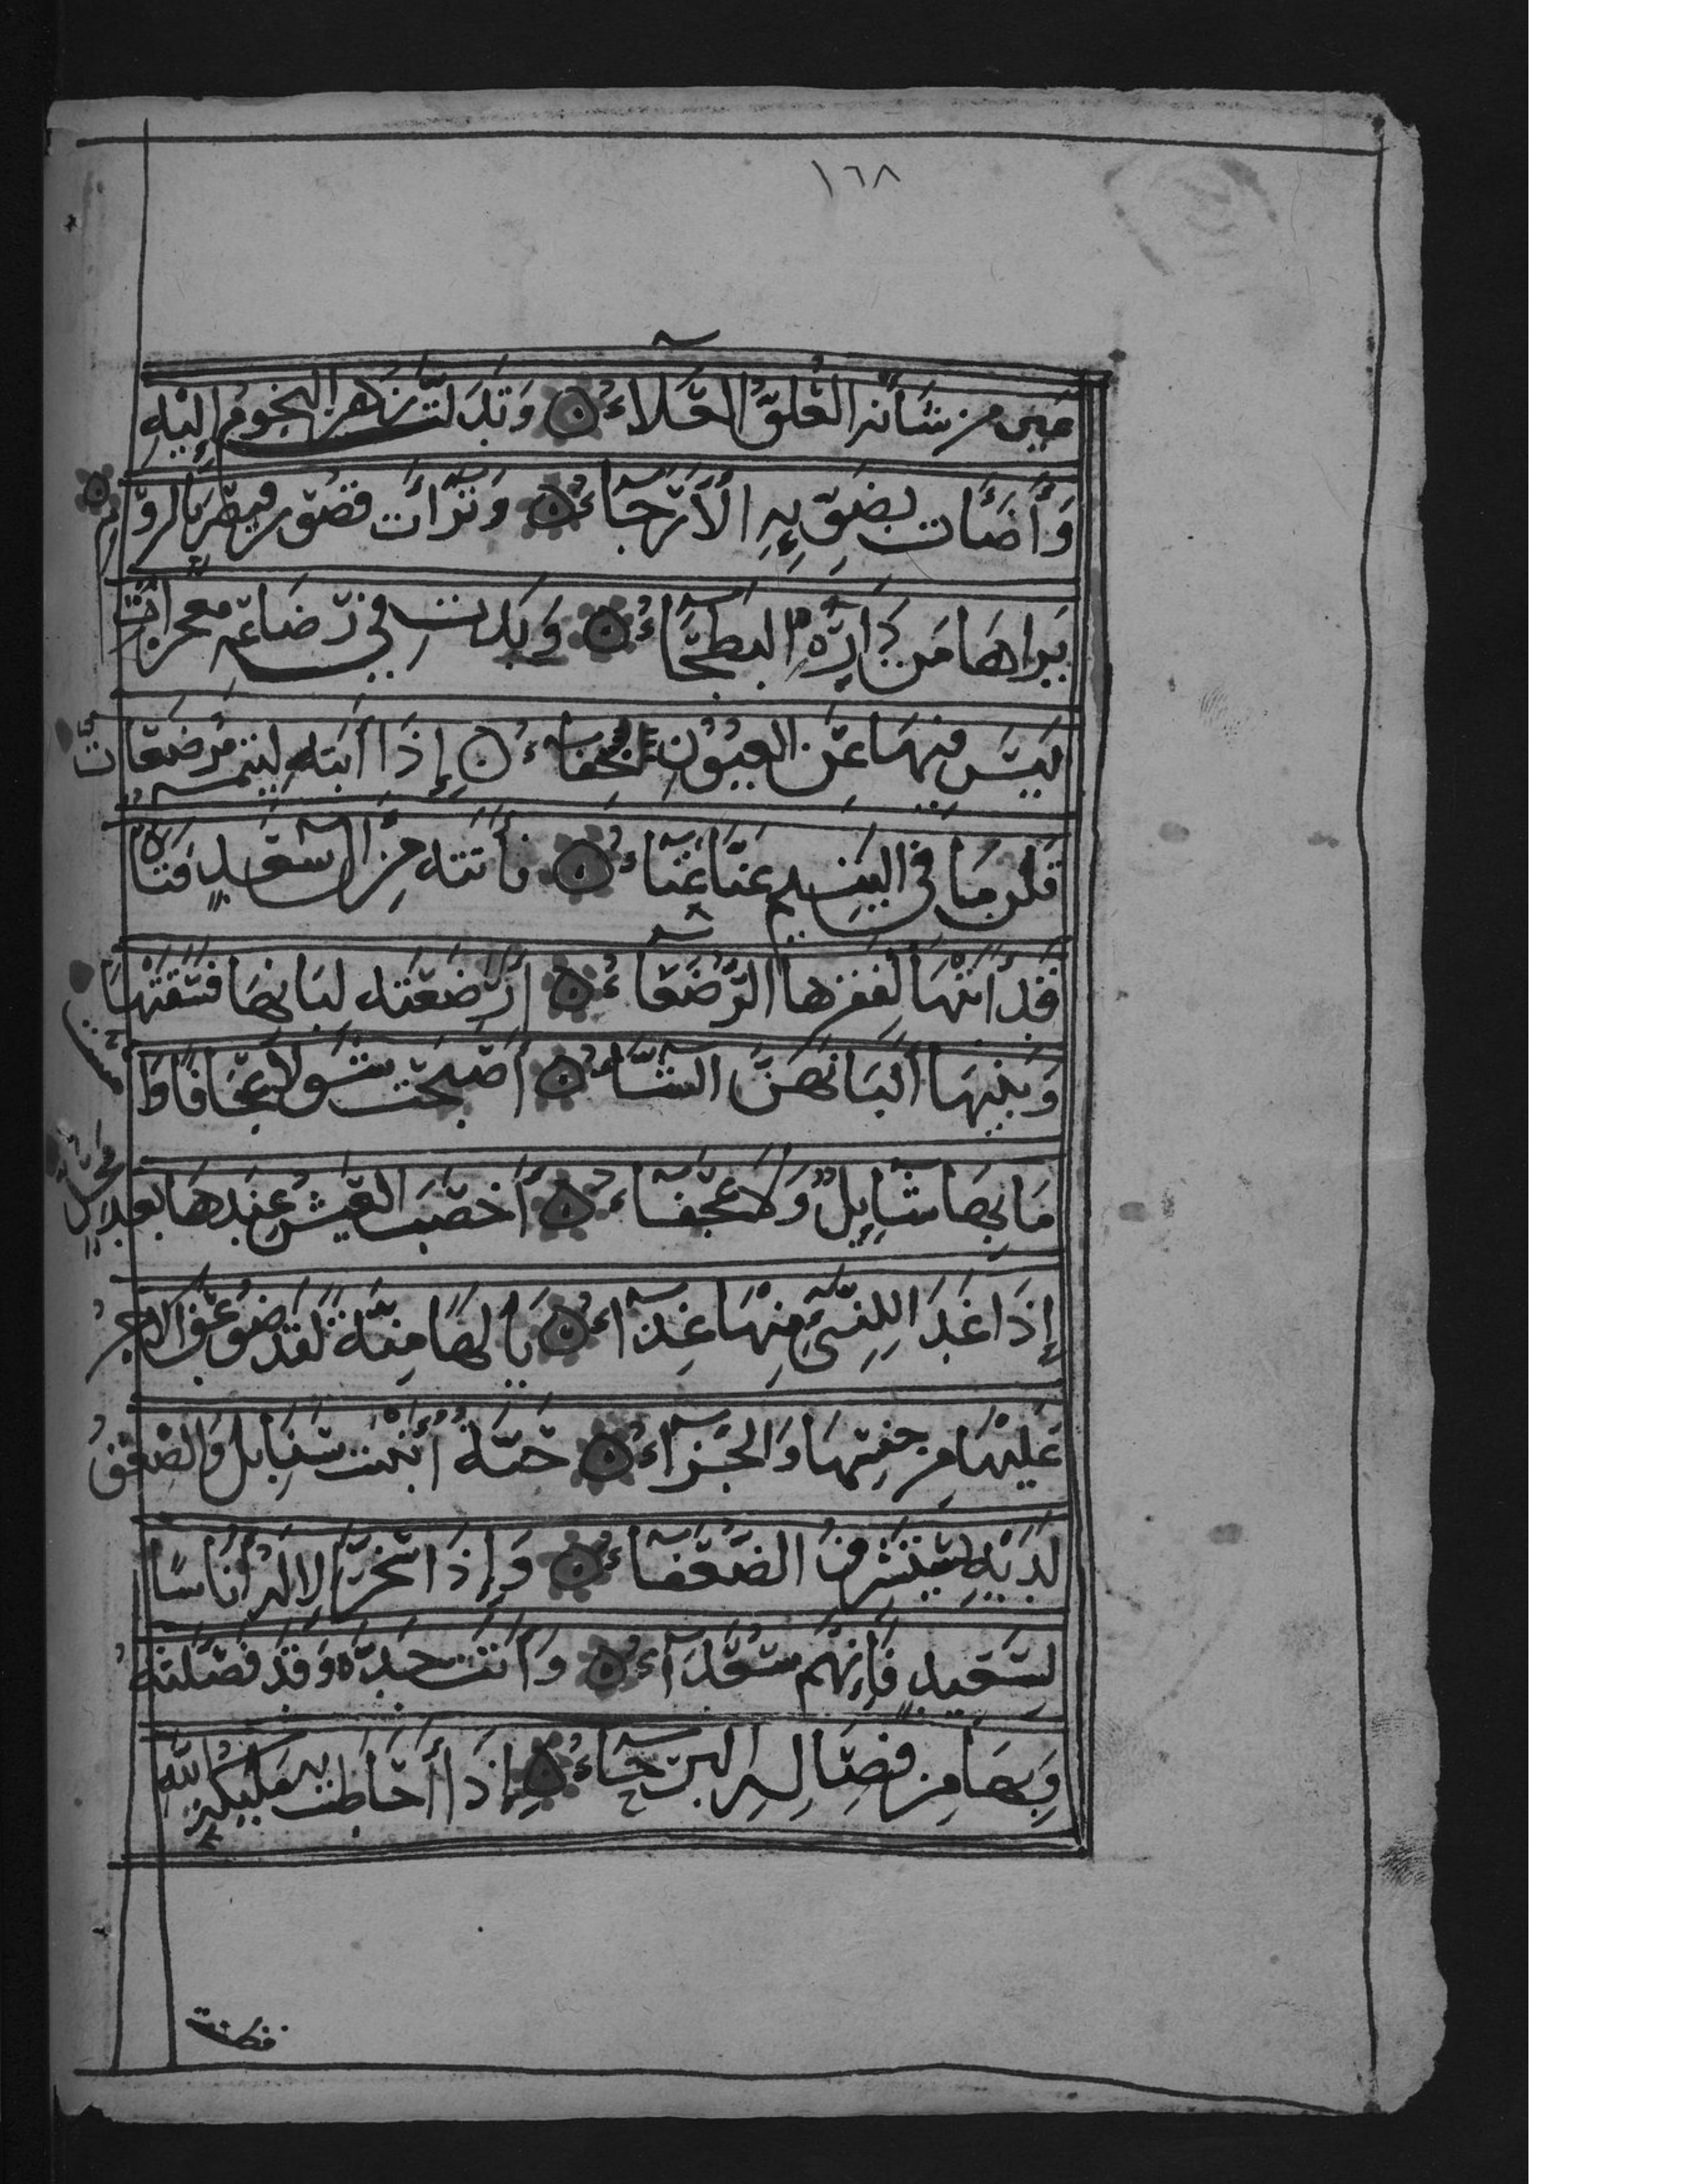 ١٦٨
عين من شأنه العلو العلاء ۞ وتدلت زهر النجوم إليه
وأضأت بضوئه الأرجاء ۞ وترأت قصور قيصر بالروم
يراها من داره البطحاء ۞ وبدت في رضاعه معجزات
ليس فيها عن العيون خفاء ۞ إذا أبته ليتمه مرضعات
قلن ما في اليتيم عنا غناء ۞ فأتته من ال سعد فتاة
قد أبتها لفقرها الرضعاء ۞ أرضعته لبانها فسقتها
وبنيها ألبانهن الشاء ۞ أصبحت شولا عجافا
ما بها شايل ولا عجفاء ۞ أخصب العيش عندها بعد محل
إذا غدا للنبي منها غذاء ۞ يا لها منة لقد ضوعف الاجر
عليها من جنسها والجزاء ۞ حبة أنبتت سنابل والعصف
لديه يستشرف الضعفاء ۞ وإذا سخر الاله أناسا
لسعيد فإنهم سعدآء ۞ وأتت جده وقد فصلته
وبها من فصاله البرحاء ۞ إذا أحاطت به مليكة الله
فظنت